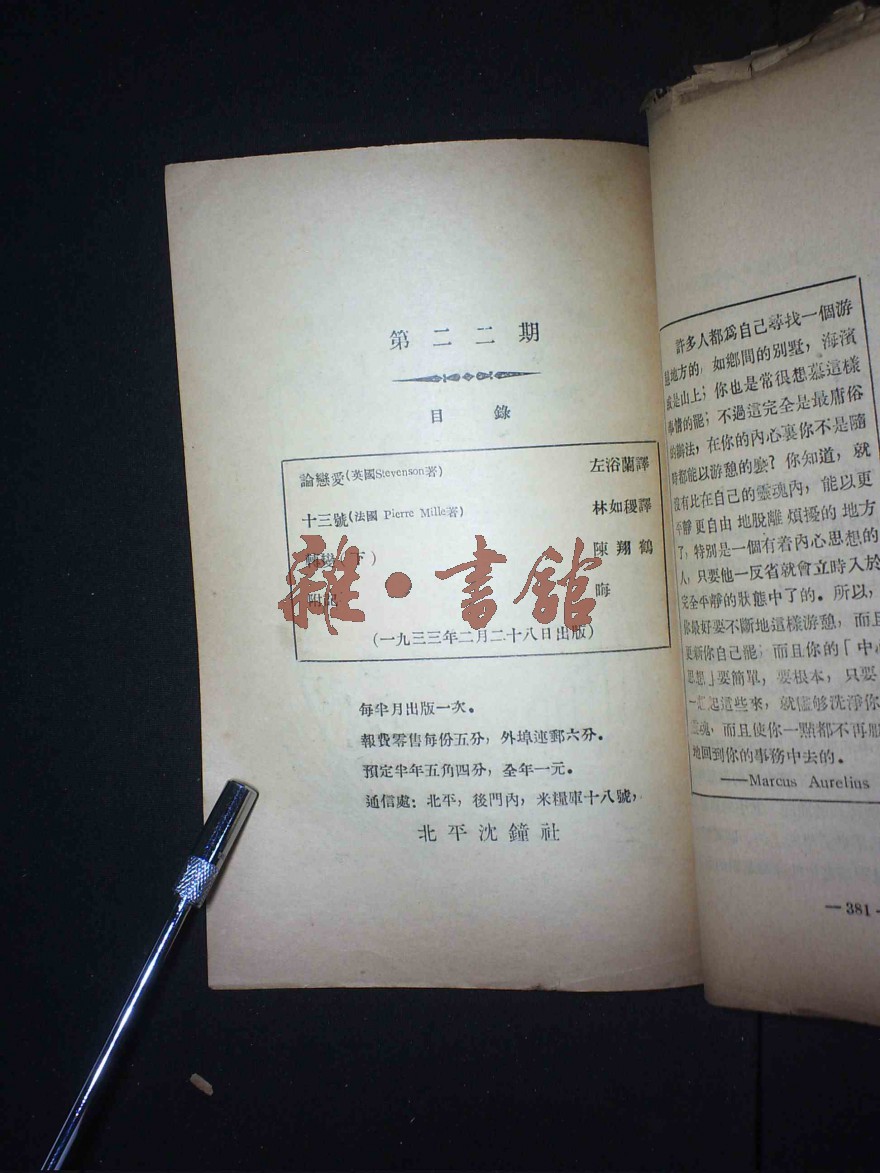 第二二期
目錄
論戀愛(英國Stevenson著) 左浴蘭譯
十三號(法國 Pierre Mille著) 林如稷譯
轉變(下) 陳翔鶴
附記 晦
(一九三三年二月二十八日出版)
每半月出版一次。
報費零售每份五分,外埠連郵六分。
預定半年五角四分,全年一元。
通信處:北平,後門內,米糧庫十八號,
北平沈鐘社
雜·書館
許多人都爲自己尋找一個游
憩地方的,如鄉間的別墅,海濱
或是山上;你也是常很想慕這樣
事情的罷;不過這完全是最庸俗
的辦法,在你的內心裏你不是隨
時都能以游憩的麽?你知道,就
沒有比在自己的靈魂內,能以更
平靜更自由地脫離煩擾的地方
了,特別是一個有着內心思想的
人,只要他一反省就會立時入於
完全平靜的狀態中了的。所以,
你最好要不斷地這樣游憩,而且
更新你自己罷;而且你的「中心
思想」要簡單,要根本,只要
一起這些來,就儘够洗淨你
靈魂,而且使你一點都不再
地回到你的事務中去的。
——Marcus Aurelius
— 381 —